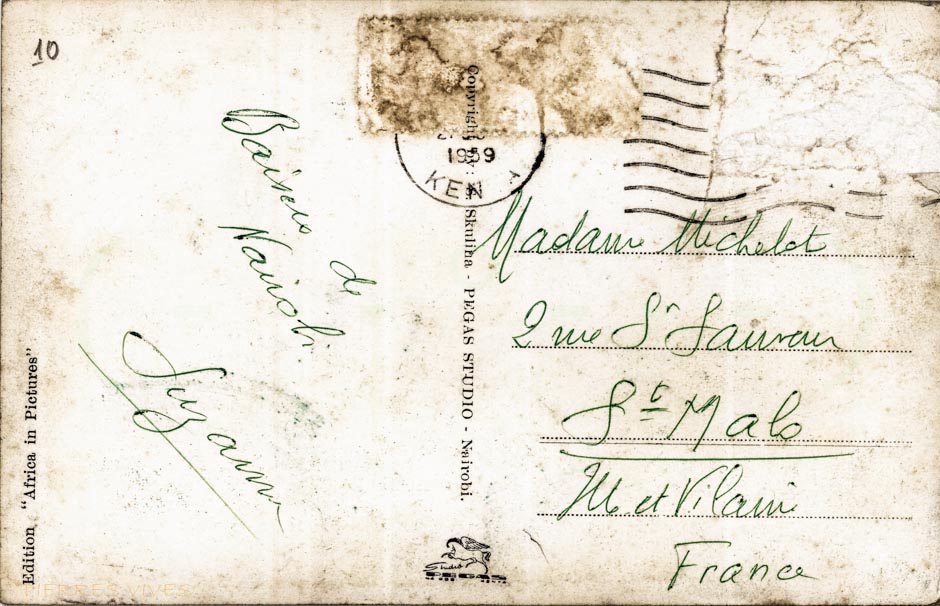 10
Baisers
de
Nairobi.
Suzanne
Edition "Africa in Pictures"
Copyright by: S. Skulina - PEGAS STUDIO - Nairobi.
1959
KEN A
Madame Michelot
2 rue St Sauveur
St Malo
Ille et Vilaine
France
Studio
PEGAS